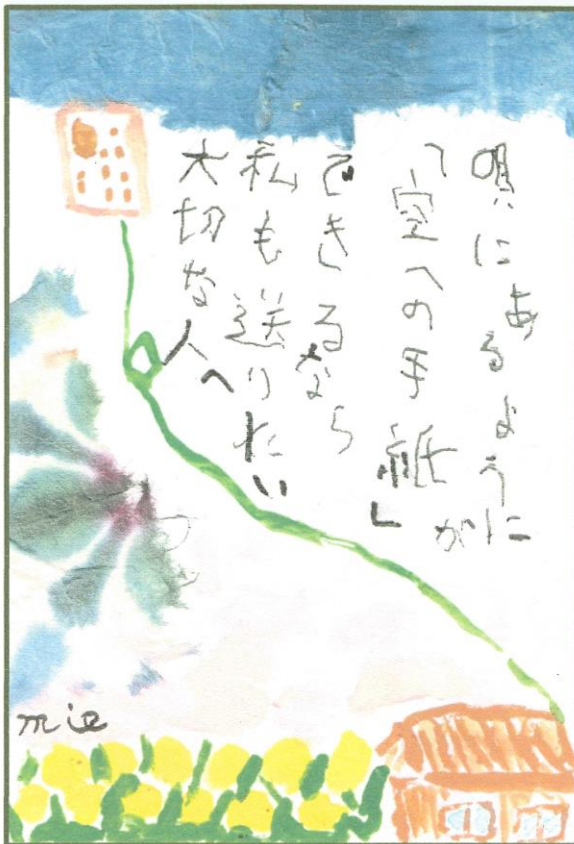 唄にあるように
「空への手紙」が
できるなら
私も送りたい
大切な人へ
mie